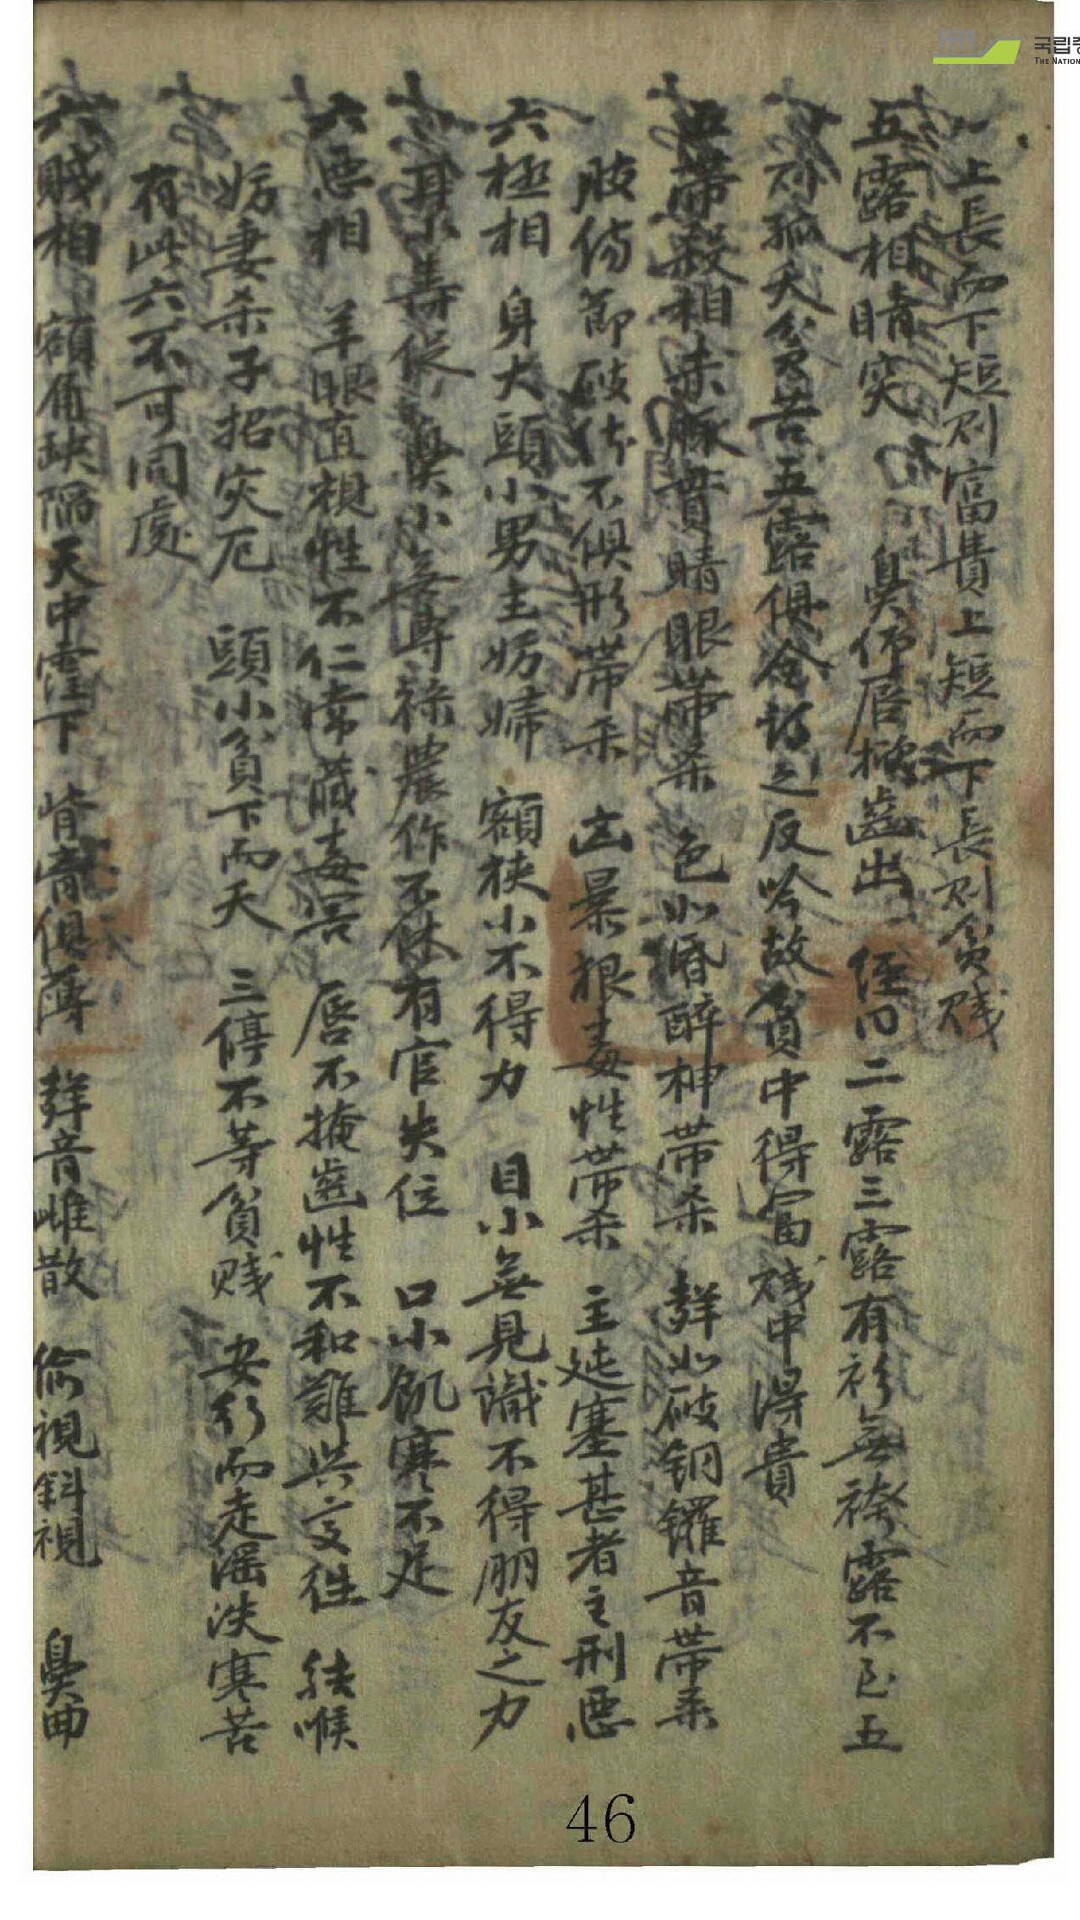 上長而下短則富貴上短而下長則貧賤
五露相睛突 鼻仰唇掀齒出 經曰二露三露有衫無袴露不至五
不孤夭貧苦五露俱全謂之反吟故貧中得富賤中得貴
五帶殺相赤脉貫睛眼帶殺 色如昏醉神帶殺 聲如破銅鑼音帶杀
肢傷節破体不俱形帶杀 凶暴狠毒性帶杀 主迍塞甚者主刑惡
六極相 身大頭小男主妨婦 額狹小不得力 目小無見識不得朋友之力
耳小壽促 鼻小無尊祿農作不休有官失位 口小飢寒不足
六惡相 羊眼直視性不仁常藏毒害 唇不掩齒性不和難共交徃 結喉
妨妻杀子招灾厄 頭小貧下而夭 三停不等貧賤 安行而走 寒苦
有此六不可同處
六賤相 額角缺陷天中 下 背胷俱薄 聲音雌散 偷視斜視 鼻曲
46
국립중
The Nation